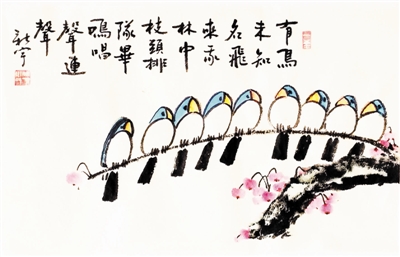 有鳥
未知
名飛
來家
林中
枝頭排
隊畢
鳴唱
聲連
聲